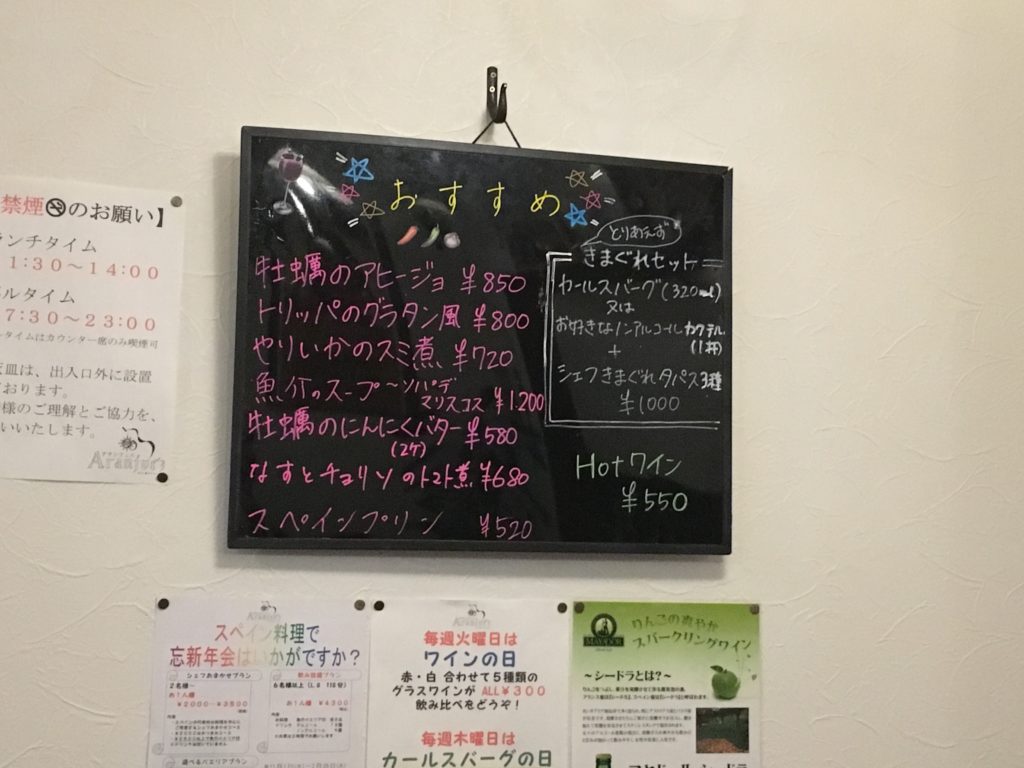 おすすめ
牡蠣のアヒージョ ¥850
トリッパのグラタン風 ¥800
やりいかのスミ煮 ¥720
魚介のスープ〜ソパデ
マリスコス ¥1.200
牡蠣のにんにくバター ¥580
(2ケ)
なすとチョリソのトマト煮 ¥680
スペインプリン ¥520
とりあえず
きまぐれセット
カールスバーグ(320ml)
又は
お好きなノンアルコールカクテル
(1杯)
+
シェフきまぐれタパス3種
¥1000
Hotワイン
¥550
禁煙 のお願い】
ンチタイム
1:30〜14:00
ルタイム
7:30〜23:00
タイムはカウンター席のみ喫煙可
皿は、出入口外に設置
おります。
様のご理解とご協力を、
いいたします。
スペイン料理で
忘新年会はいかがですか?
シェフおまかせプラン
2名様〜
お1人様
¥2000〜¥3500
飲み放題プラン
6名様以上
お1人様 ¥4300
選べるパエリアプラン
毎週火曜日は
ワインの日
赤・白 合わせて5種類の
グラスワインが ALL¥300
飲み比べをどうぞ!
毎週木曜日は
カールスバーグの日
りんごの爽やか
スパークリングワイン
〜シードラとは?〜